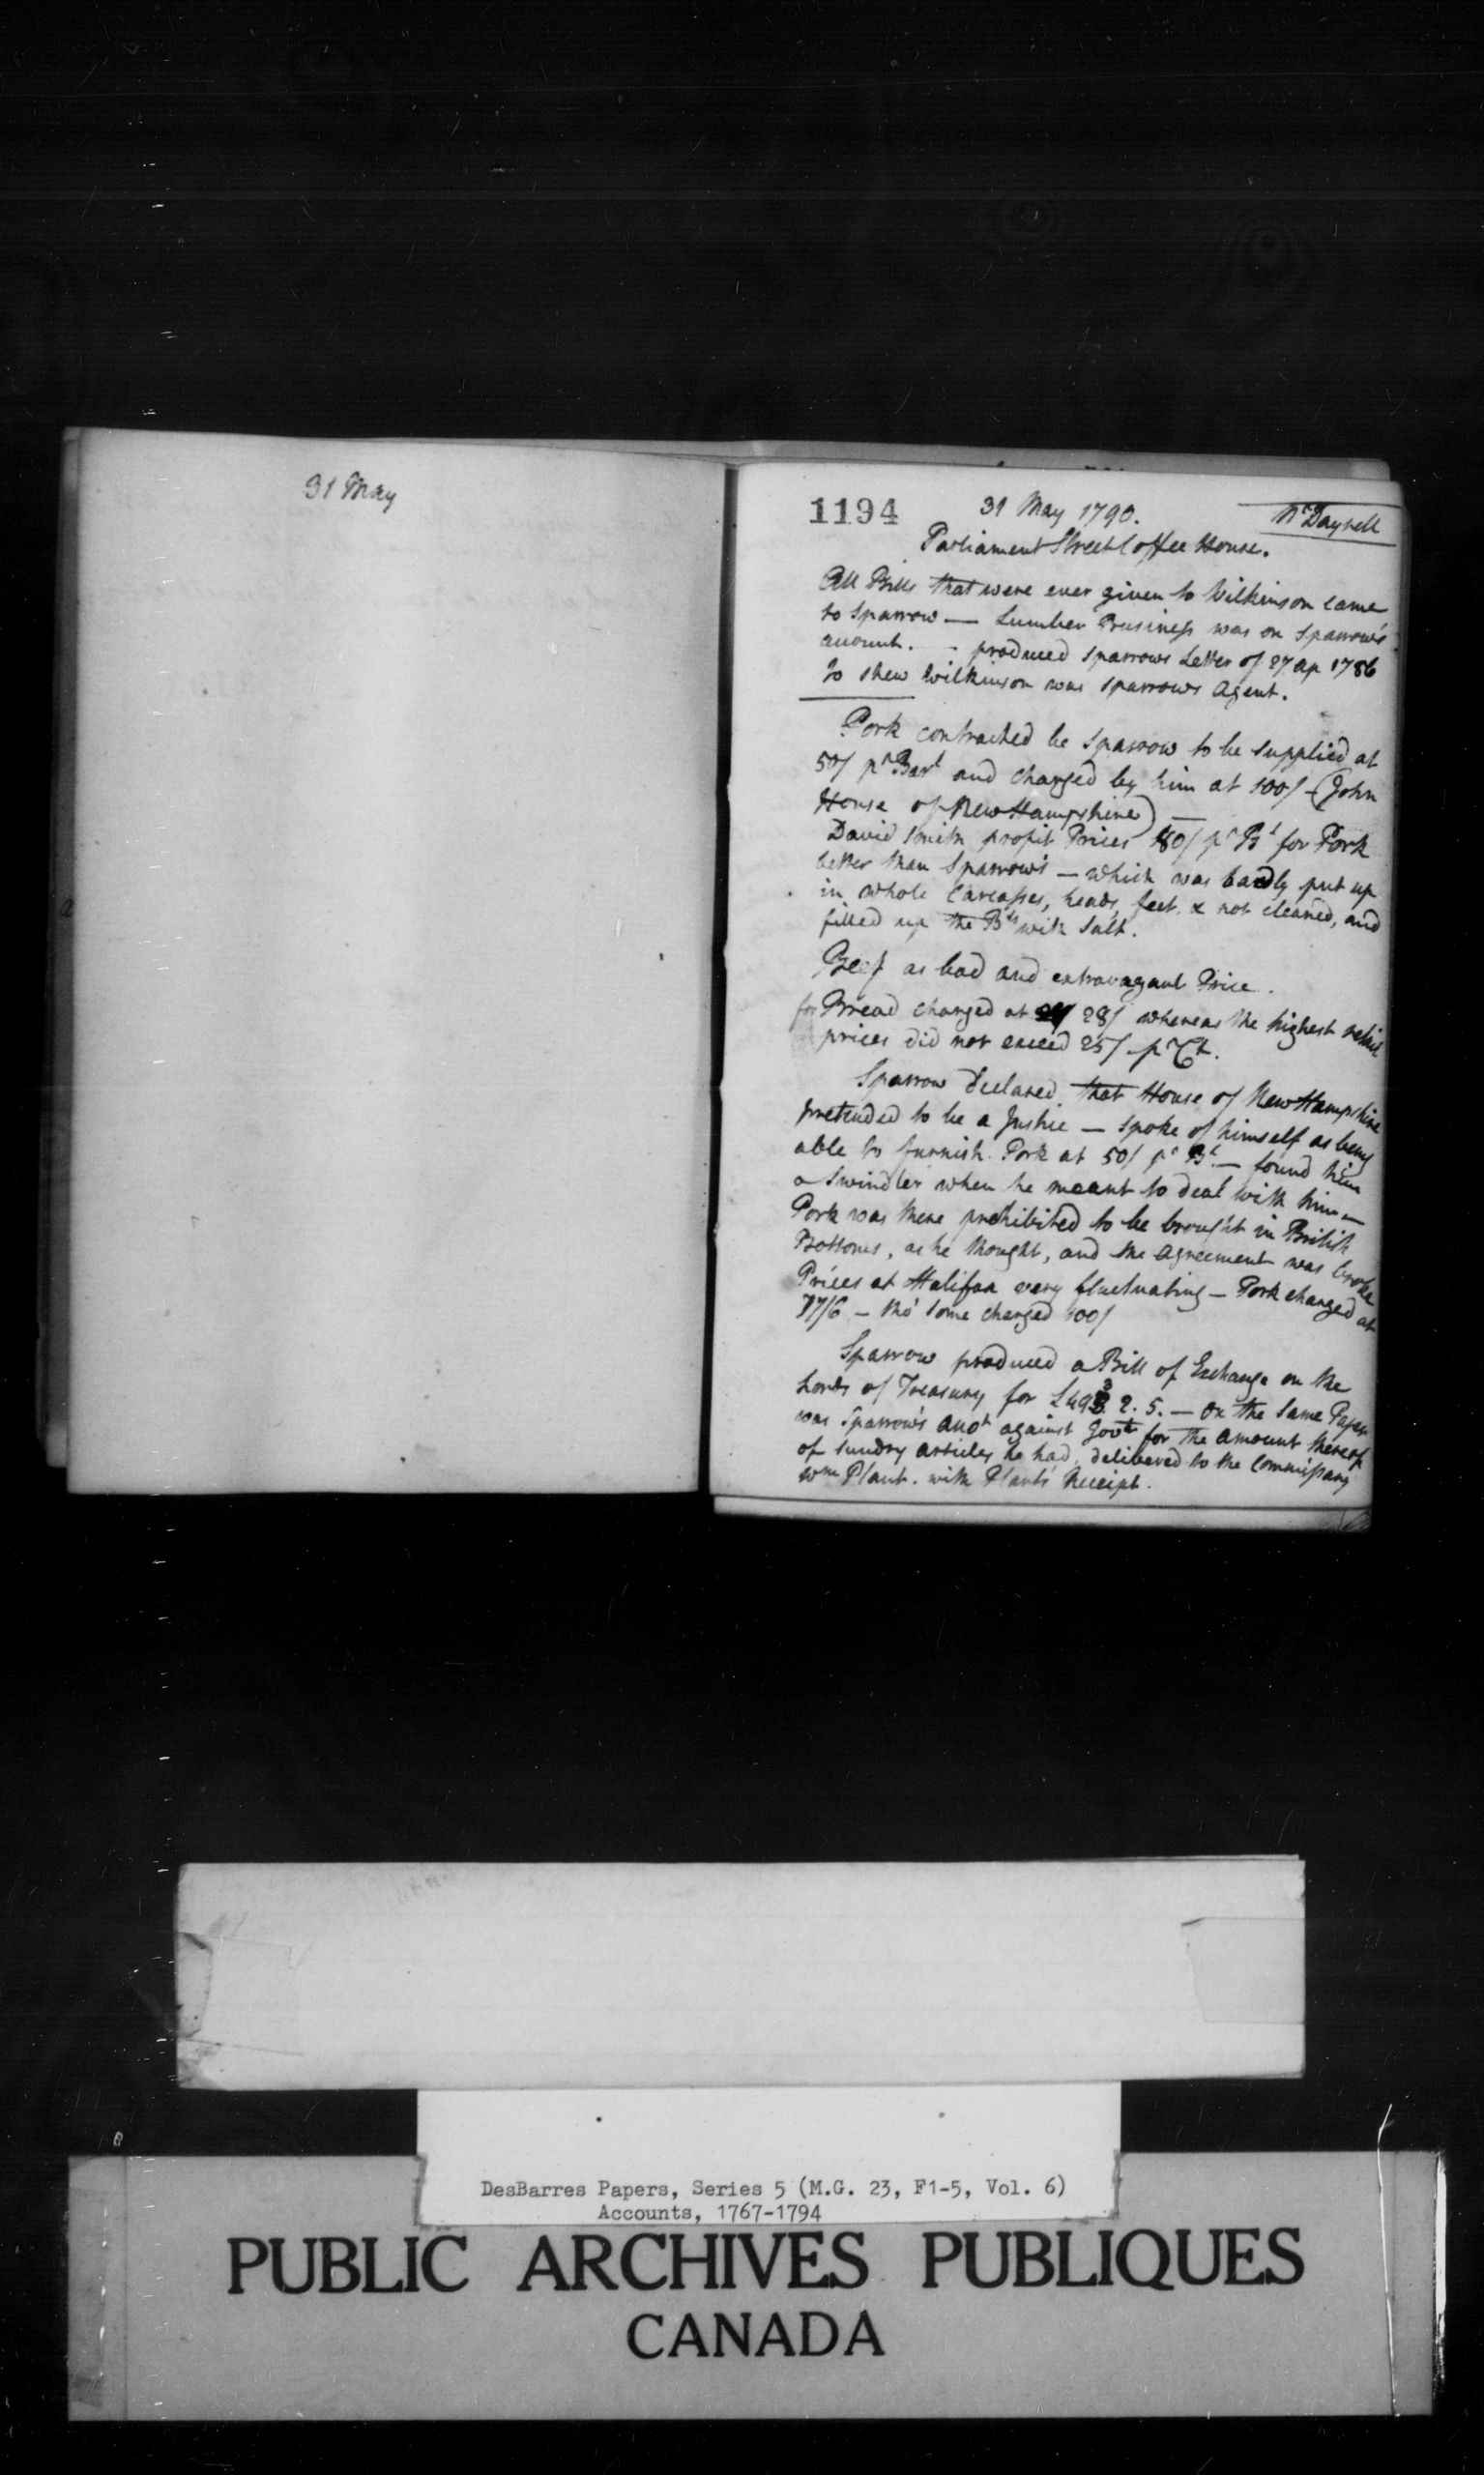 31 May
1194
31 May 1790.
Mr Dayrell
Parliament Street Coffee House.
All Bills that were ever given to Wilkinson came
to Sparrow — Lumber Business was on Sparrow's
account. - produced Sparrows Letter of 27 Ap 1786
to shew Wilkinson was Sparrows Agent.
Pork contracted be Sparrow to be supplied at
50/ pr Barl and charged by him at 100/ - (John
House of New Hampshire) —
David Smith profit Prices 80/ pr Bl for Pork
better than Sparrow's — which was badly put up
in whole Carcasses, heads, feet, & not cleaned, and
filled up the Bls with Salt.
Beef as bad and extravagant Price.
for Bread charged at 28/ whereas the highest retail
prices did not exceed 25/ pr Ct.
Sparrow declared that House of New Hampshire
pretended to be a Justice — spoke of himself as being
able to furnish Pork at 50/ pr Bl — found him
a Swindler when he meant to deal with him —
Pork was there prohibited to be brought in British
Bottoms, as he thought, and the Agreement was broke
Prices at Halifax very fluctuating — Pork charged at
77/6 — tho' some charged 100/
Sparrow produced a Bill of Exchange on the
Lords of Treasury for £493. 2. 5. — On the same Paper
was Sparrow's Acct against Govt for the amount thereof
of sundry articles he had delivered to the Commissary
Wm Plant. with Plants Receipt.
DesBarres Papers, Series 5 (M.G. 23, F1-5, Vol. 6)
Accounts, 1767-1794
PUBLIC ARCHIVES PUBLIQUES
CANADA